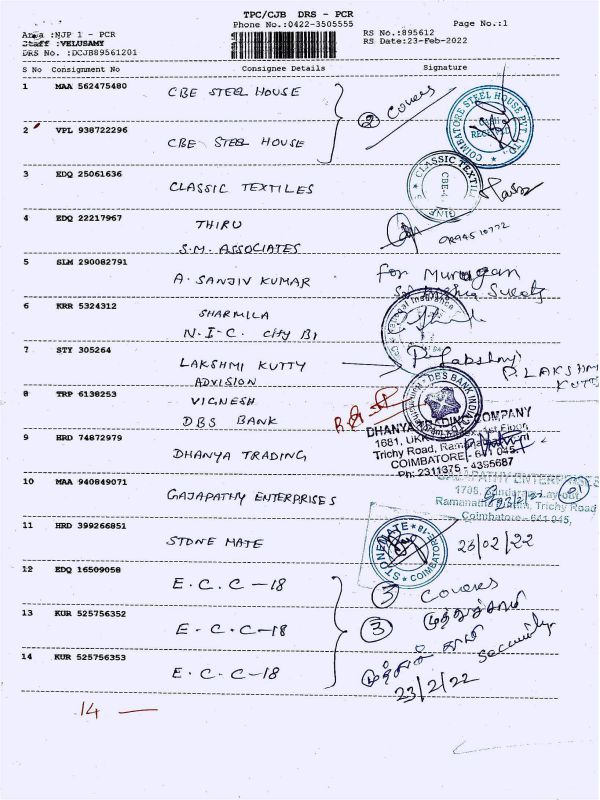 TPC/CJB DRS - PCR
Phone No.:0422-3505555
Page No.:1
Area :NJP 1 - PCR
Staff :VELUSAMY
DRS No. :DCJB89561201
RS No.:895612
RS Date:23-Feb-2022
S No Consignment No Consignee Details Signature
1 MAA 562475480 CBE STEEL HOUSE
② Covers
COIMBATORE STEEL HOUSE PVT. LTD.
2 VPL 938722296 CBE STEEL HOUSE
3 EDQ 25061636 CLASSIC TEXTILES
CLASSIC TEXTIL
CBE-4
4 EDQ 22217967 THIRU
S.M. ASSOCIATES
5 SLM 290082791 A. SANJIV KUMAR
for Murugan
6 KRR 5324312 SHARMILA
N.I.C. City B1
Insurance
7 STY 305264 LAKSHMI KUTTY
ADVISION
P. LAKSHMI
KUTTY
8 TRP 6138253 VIGNESH
DBS BANK
DBS BANK INDIA
9 HRD 74872979 DHANYA TRADING
DHANYA TRADING COMPANY
1681, Floor
Trichy Road,
COIMBATORE - 641 045.
Ph: 2311375 - 4395687
10 MAA 940849071 GAJAPATHY ENTERPRISES
GAJAPATHY ENTERPRISES
1706, Layout
Trichy Road
Coimbatore - 641 045,
23/2/22
11 HRD 399266851 STONE MATE
STONEMATE
COIMBATORE-18
23/02/22
12 EDQ 16509058 E.C.C-18
③ Covers
13 KUR 525756352 E.C.C-18
③
முத்துச்சாமி
Security
14 KUR 525756353 E.C.C-18
23/2/22
14 —